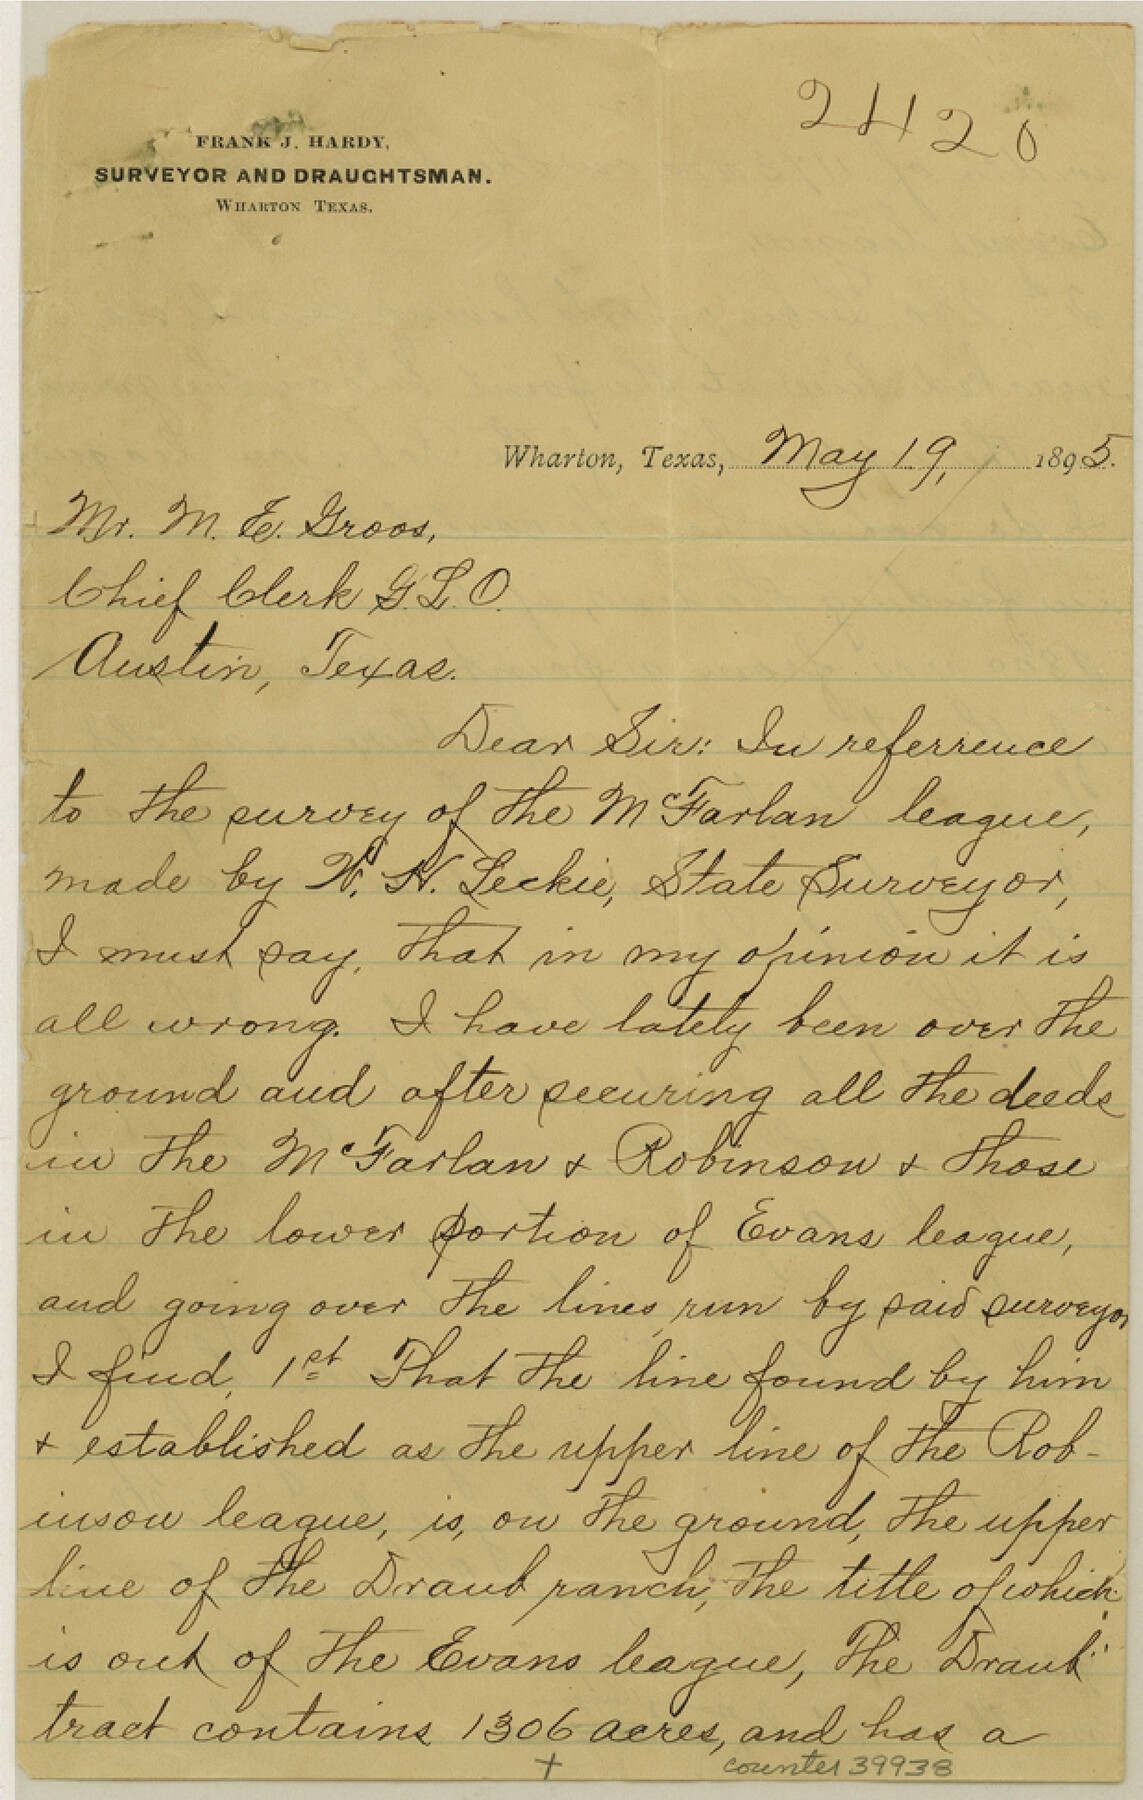 2420
FRANK J. HARDY,
SURVEYOR AND DRAUGHTSMAN.
WHARTON TEXAS.
Wharton, Texas, May 19, 1895.
Mr. M. E. Groos,
Chief Clerk G.L.O.
Austin, Texas.
Dear Sir: In referrence
to the survey of the McFarlan league,
made by W. H. Leckie, State Surveyor,
I must say, that in my opinion it is
all wrong. I have lately been over the
ground and after securing all the deeds
in the McFarlan & Robinson & those
in the lower portion of Evans league,
and going over the lines run by said surveyor
I find, 1st That the line found by him
& established as the upper line of the Rob-
inson league, is, on the ground, the upper
line of the Draub ranch, the title of which
is out of the Evans league, The Draub
tract contains 1306 acres, and has a
+ counter 39938